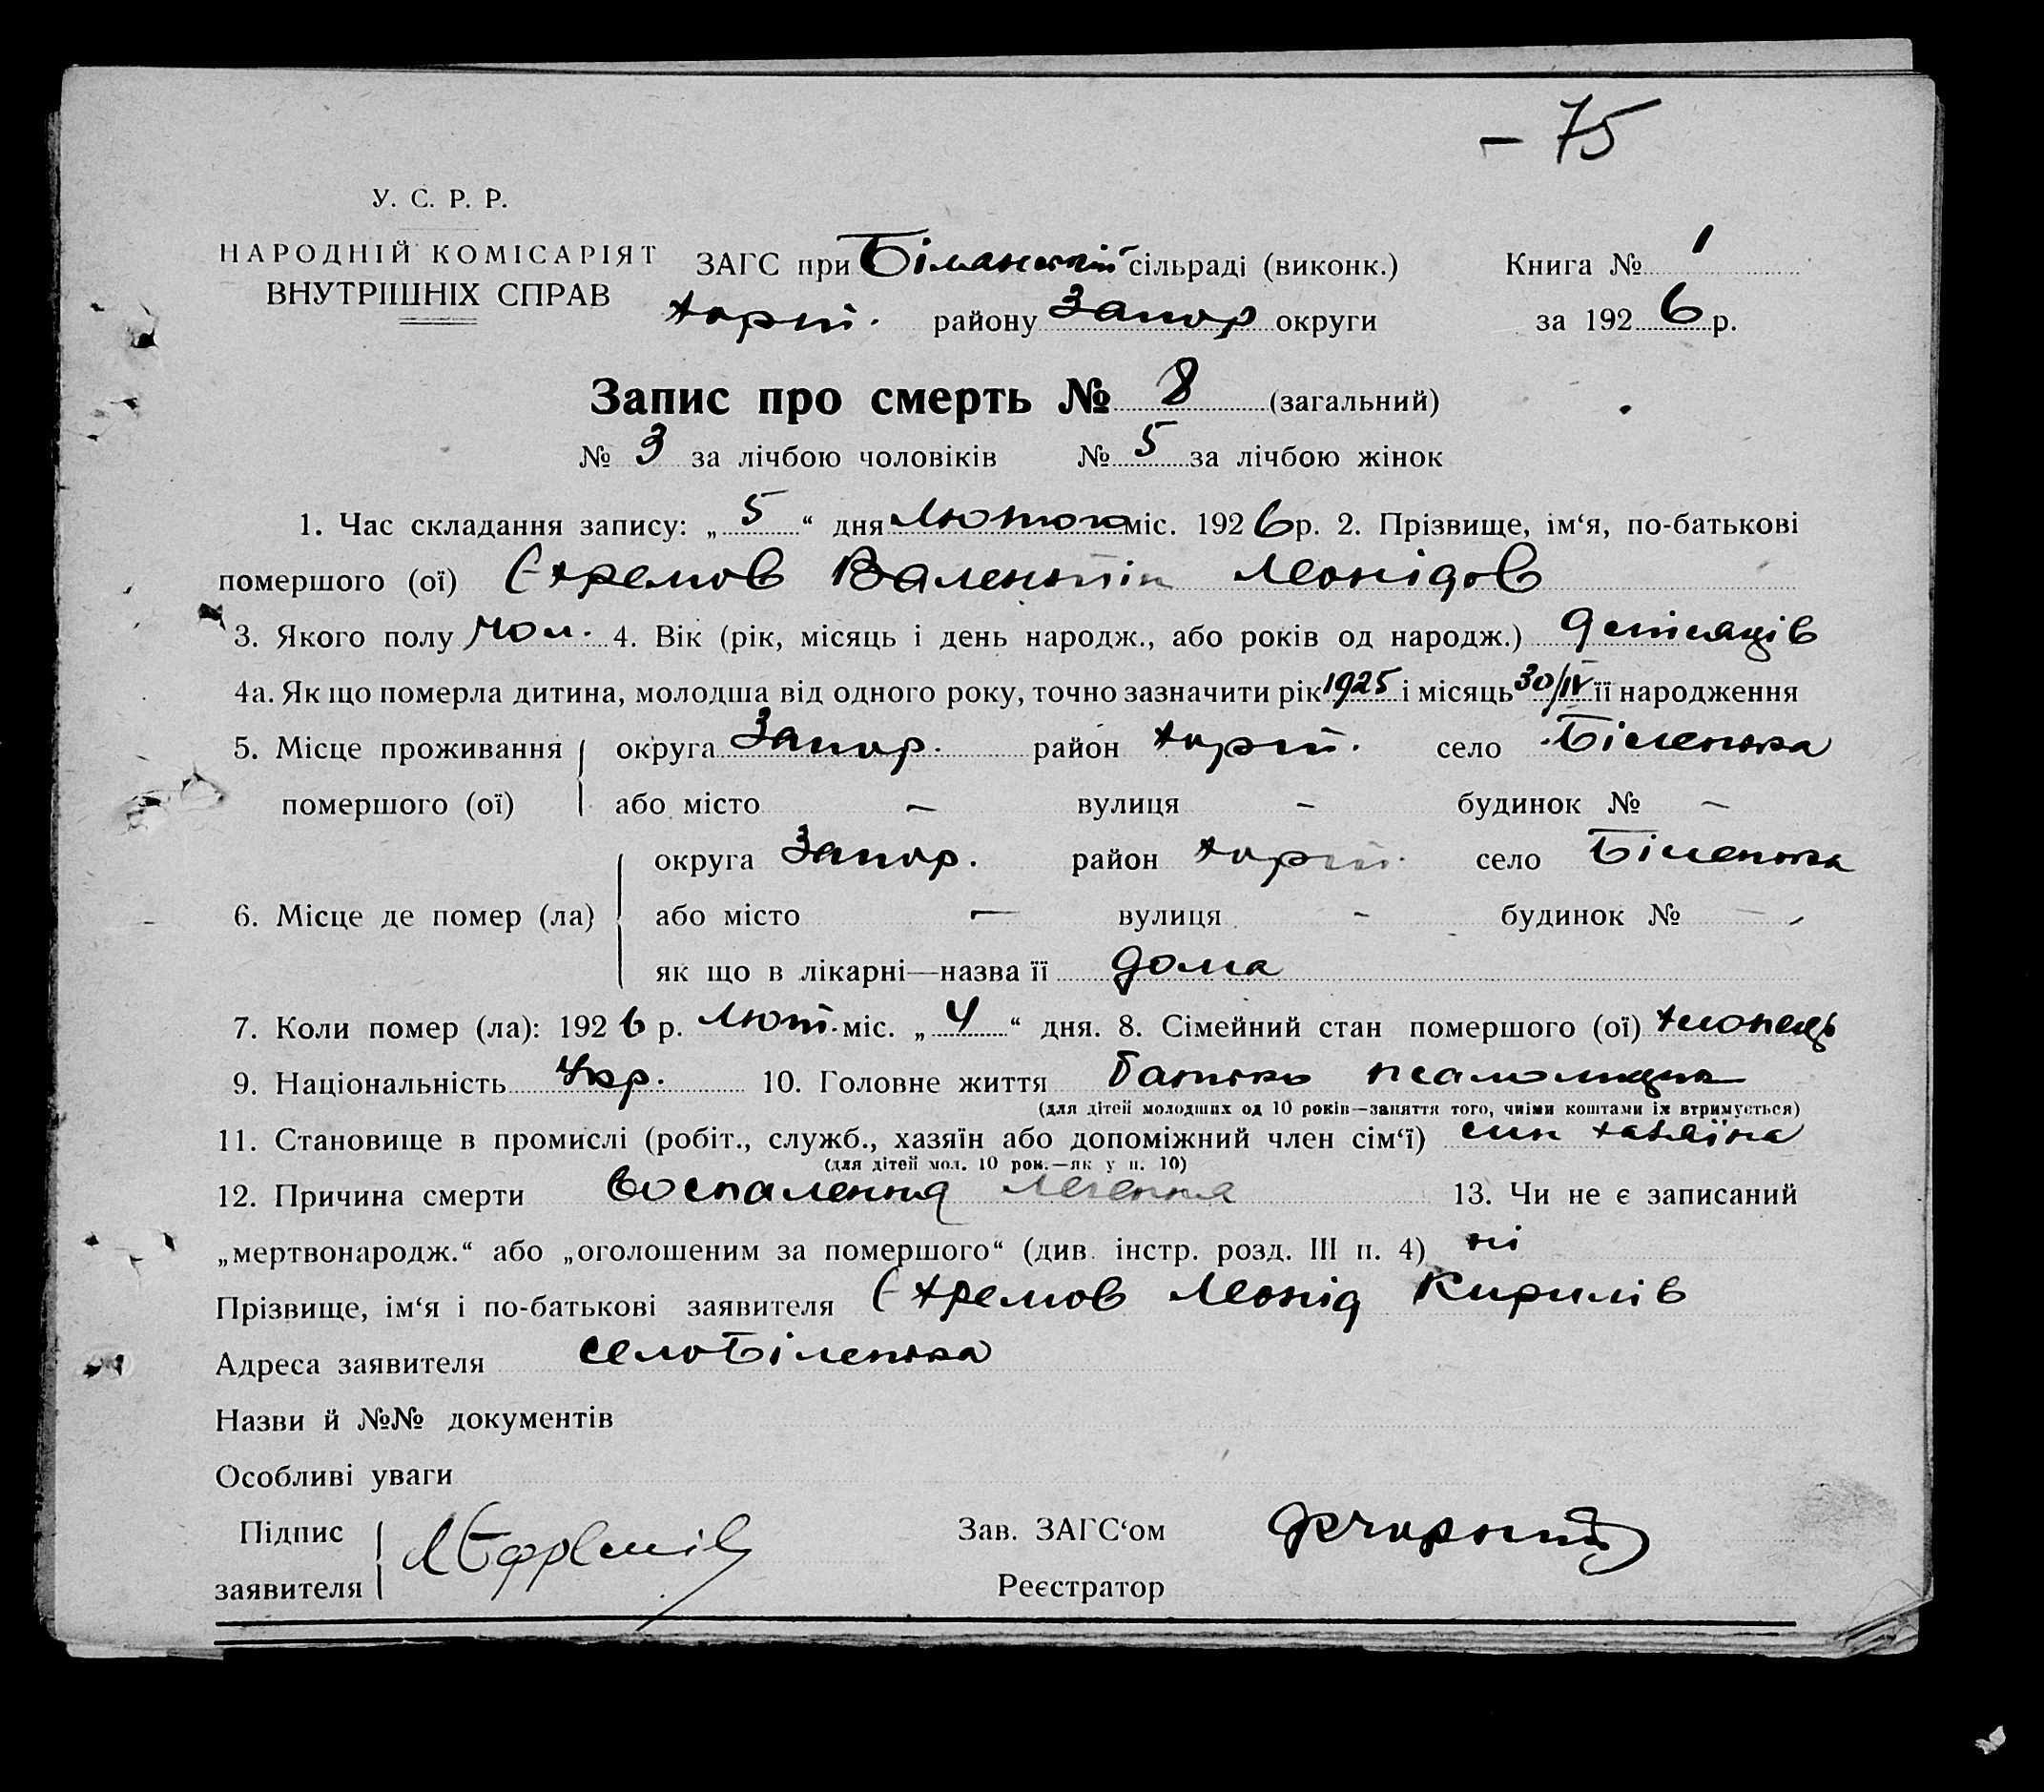 – 75
У. С. Р. Р.
НАРОДНІЙ КОМІСАРІЯТ
ВНУТРІШНІХ СПРАВ
ЗАГС при сільраді (виконк.)
Хорт. району Запор округи
Книга № 1
за 1926 р.
Запис про смерть № 8 (загальний)
№ 3 за лічбою чоловіків № 5 за лічбою жінок
1. Час складання запису: „5“ дня Лютого міс. 1926 р. 2. Прізвище, ім‘я, по-батькові
помершого (ої) Єхремов Валентін Леонідов
3. Якого полу чол. 4. Вік (рік, місяць і день народж., або років од народж.) 9 місяців
4а. Як що померла дитина, молодша від одного року, точно зазначити рік 1925 і місяць 30/IV її народження
5. Місце проживання округа Запор. район Хорт. село Біленька
помершого (ої) або місто – вулиця – будинок № –
округа Запор. район Хорт. село Біленька
6. Місце де помер (ла) або місто – вулиця – будинок № –
як що в лікарні—назва її дома
7. Коли помер (ла): 1926 р. Лют. міс. „4“ дня. 8. Сімейний стан помершого (ої) хлопець
9. Національність Укр. 10. Головне життя батько псаломщик
(для дітей молодших од 10 років—заняття того, чиїми коштами їх втримується)
11. Становище в промислі (робіт., служб., хазяїн або допоміжний член сім‘ї) син хазяїна
(для дітей мол. 10 рок.—як у п. 10)
12. Причина смерти Воспалення легення 13. Чи не є записаний
„мертвонародж.“ або „оголошеним за помершого“ (див. інстр. розд. III п. 4) ні
Прізвище, ім‘я і по-батькові заявителя Єхремов Леонід Кирилів
Адреса заявителя село Біленька
Назви й №№ документів
Особливі уваги
Підпис
заявителя
Л Ефремів
Зав. ЗАГС‘ом
Реєстратор